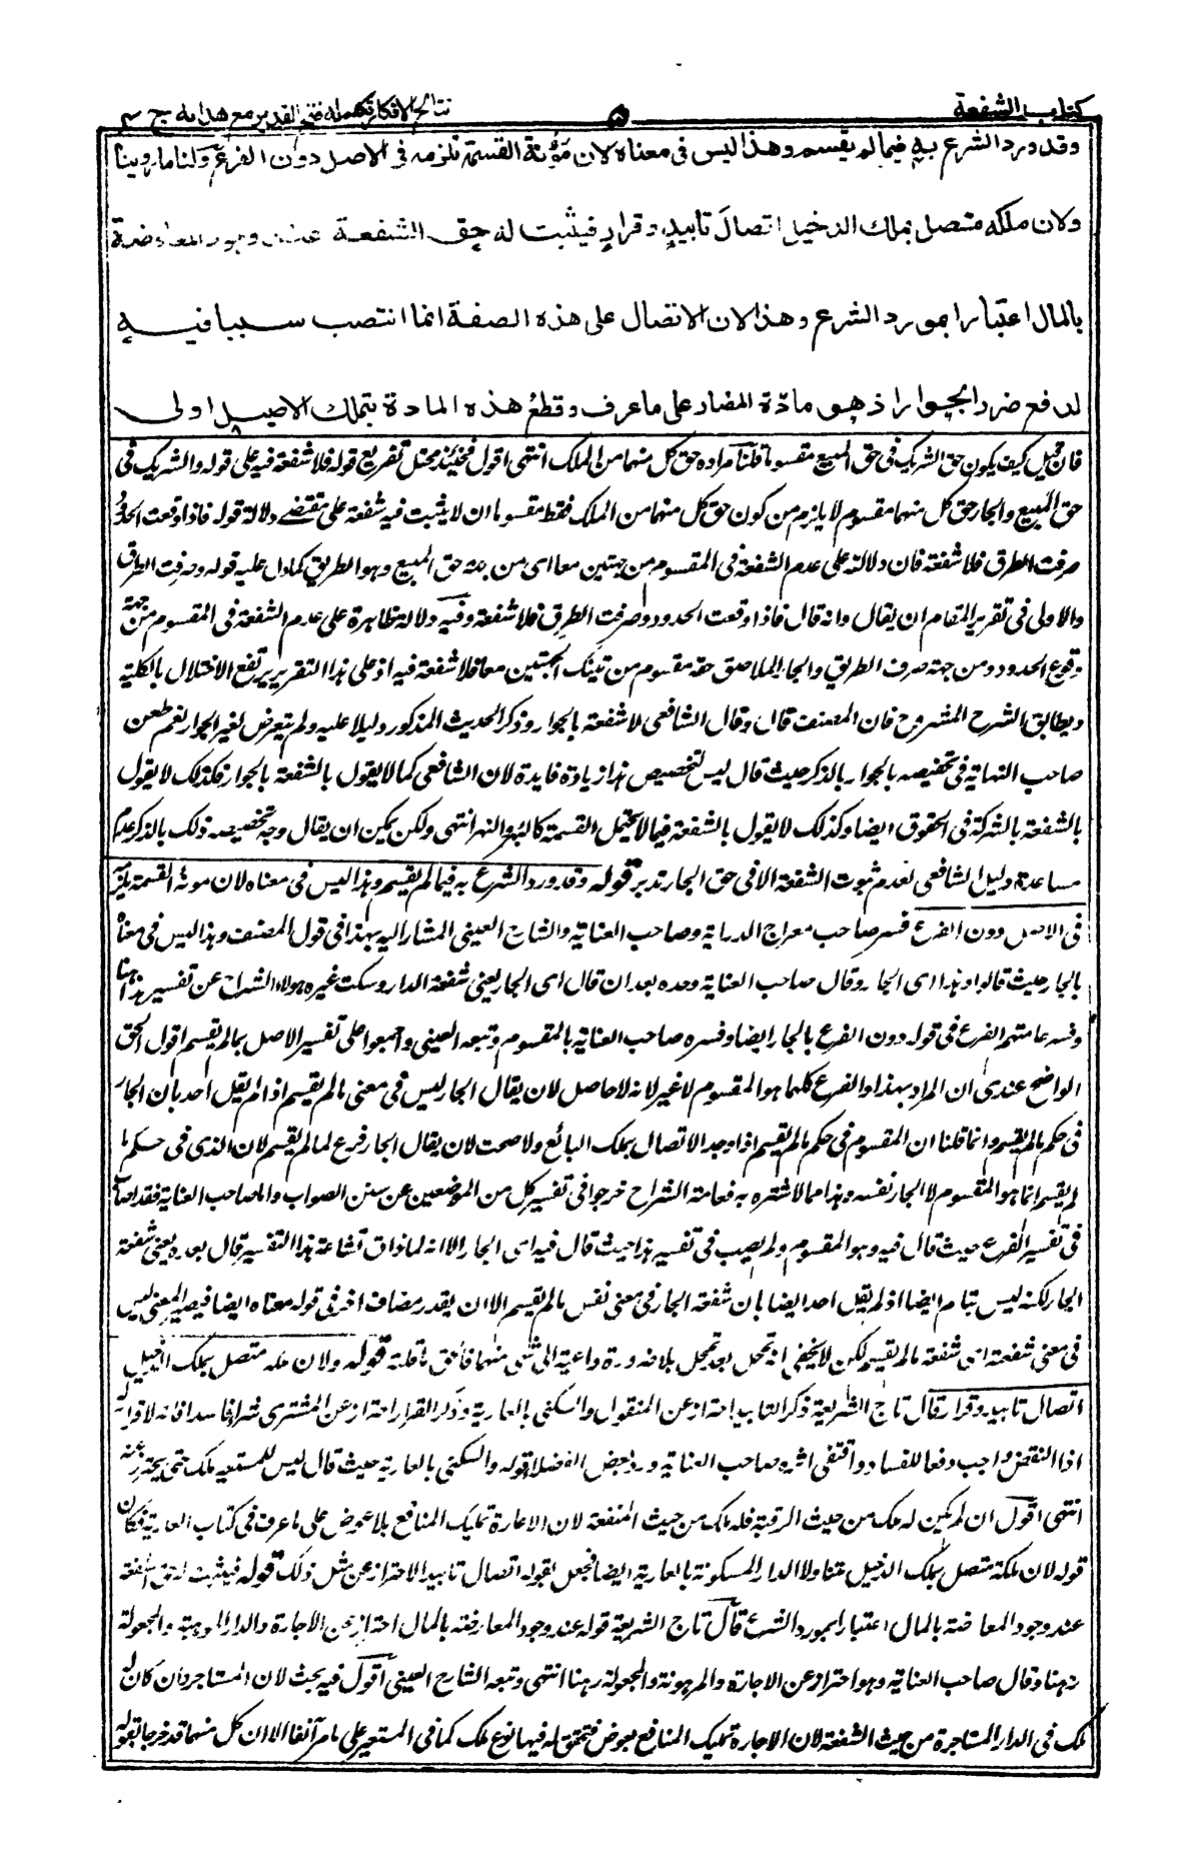 كتاب الشفعة
٥
نتائج الافكار تكمله فتح القدير مع هدايه ج ٣
وقد ورد الشرع به فيما لم يقسم وهذا ليس فى معناه لان مؤنة القسمة تلزمه فى الاصل دون الفرع ولنا ما روينا
ولان ملكه متصل بملك الدخيل اتصال تابيد وقرار فيثبت له حق الشفعة عند وجود المعاوضة
بالمال اعتبارا بمورد الشرع وهذا لان الاتصال على هذه الصفة انما انتصب سببا فيه
لدفع ضرر الجوار اذ هو مادة المضار على ما عرف وقطع هذه المادة بتملك الاصيل اولى
فان قيل كيف يكون حق الشريك فى حق المبيع مقسوما قلنا مراده حق كل منهما من الملك انتهى اقول فحينئذ يختل تفريع قوله فلا شفعة فيه على قوله والشريك فى
حق المبيع والجار حق كل منهما مقسوم لا يلزم من كون حق كل منهما من الملك فقط مقسوما ان لا يثبت فيه شفعة على مقتضى دلالة قوله فاذا وقعت الحدود
صرفت الطرق فلا شفعة فان دلالته على عدم الشفعة فى المقسوم من جهتين معا اى من جهة حق المبيع وهو الطريق كما دل عليه قوله وصرفت الطرق
والاولى فى تقرير المقام ان يقال وانه قال فاذا وقعت الحدود وصرفت الطرق فلا شفعة وفيه دلالة ظاهرة على عدم الشفعة فى المقسوم من جهة
وقوع الحدود ومن جهة صرف الطريق والجار الملاصق حقه مقسوم من تينك الجهتين معا فلا شفعة فيه اذ على هذا التقرير يرتفع الاختلال بالكلية
ويطابق الشرح المشروح فان المصنف قال وقال الشافعى لا شفعة بالجوار وذكر الحديث المذكور دليلا عليه ولم يتعرض لغير الجوار نعم طعن
صاحب النهاية فى تخصيصه بالجوار بالذكر حيث قال ليس لتخصيص هذا زيادة فايدة لان الشافعى كما لا يقول بالشفعة بالجوار فكذلك لا يقول
بالشفعة بالشركة فى الحقوق ايضا وكذلك لا يقول بالشفعة فيما لا يحتمل القسمة كالبئر والنهر انتهى ولكن يمكن ان يقال وجه تخصيصه ذلك بالذكر عدم
مساعدة دليل الشافعى لعدم ثبوت الشفعة الا فى حق الجار تدبر قوله وقد ورد الشرع به فيما لم يقسم وهذا ليس فى معناه لان مونة القسمة تلزمه
فى الاصل دون الفرع فسر صاحب معراج الدراية وصاحب العناية والشارح العينى المشار اليه بهذا فى قول المصنف وهذا ليس فى معناه
بالجار حيث قالوا وهذا اى الجار وقال صاحب العناية وحده بعد ان قال اى الجار يعنى شفعة الدار وسكت غيره هؤلاء الشراح عن تفسير هذا ههنا
وفسر عامتهم الفرع فى قوله دون الفرع بالجار ايضا وفسره صاحب العناية بالمقسوم وتبعه العينى واجمعوا على تفسير الاصل بما لم يقسم اقول الحق
الواضح عندى ان المراد بهذا والفرع كليهما هو المقسوم لا غير لانه لا حاصل لان يقال الجار ليس فى معنى ما لم يقسم اذ لم يقل احد بان الجار
فى حكم ما لم يقسم وانما قلنا ان المقسوم فى حكم ما لم يقسم اذا وجد الاتصال بملك البائع ولا صحت لان يقال الجار فرع لما لم يقسم لان الذى فى حكم ما
لم يقسم انما هو المقسوم لا الجار نفسه وهذا مما لا اشتره به فعامة الشراح خرجوا فى تفسير كل من الموضعين عن سنن الصواب واما صاحب العناية فقد اصاب
فى تفسير الفرع حيث قال فيه وهو المقسوم ولم يصب فى تفسير هذا حيث قال فيه اى الجار الا انه لما ذاق بشاعة هذا التفسير قال بعده يعنى شفعة
الجار لكنه ليس بتام ايضا اذ لم يقل احد ايضا بان شفعة الجار فى معنى نفس ما لم يقسم الا ان يقدر مضاف اخر فى قوله معناه ايضا فيصير المعنى ليس
فى معنى شفعته اى شفعة ما لم يقسم لكن لا يخفى انه تمحل بعد تمحل بلا ضرورة داعية الى شئ منهما فالحق ما قلته قوله ولان ملكه متصل بملك الدخيل
اتصال تابيد وقرار قال تاج الشريعة ذكر التابيد احتراز عن المنقول والسكنى بالعارية وذكر القرار احتراز عن المشترى شراء فاسدا فانه لا قرار له
اذ النقض واجب دفعا للفساد واقتفى اثره صاحب العناية ورد بعض الفضلاء قوله والسكنى بالعارية حيث قال ليس للمستعير ملك حتى يحترز عنه
انتهى اقول ان لم يكن له ملك من حيث الرقبة فله ملك من حيث المنفعة لان الاعارة تمليك المنافع بلا عوض على ما عرف فى كتاب العارية فكان
قوله لان ملكه متصل بملك الدخيل متناولا الدار المسكونة بالعارية ايضا فجعل قوله اتصال تابيد الاحتراز عن مثل ذلك قوله فيثبت له حق الشفعة
عند وجود المعاوضة بالمال اعتبارا بمورد الشرع قال تاج الشريعة قوله عند وجود المعاوضة بالمال احتراز عن الاجارة والدار الموهوبة والمجعولة
رهنا وقال صاحب العناية وهو احتراز عن الاجارة والمرهونة والمجعولة رهنا انتهى وتبعه الشارح العينى اقول فيه بحث لان المستاجر وان كان له
ملك فى الدار المستاجرة من حيث الشفعة لان الاجارة تمليك المنافع بعوض فتحقق له فيها نوع ملك كما فى المستعير على ما مر آنفا الا ان كل منهما قد خرجا بقوله